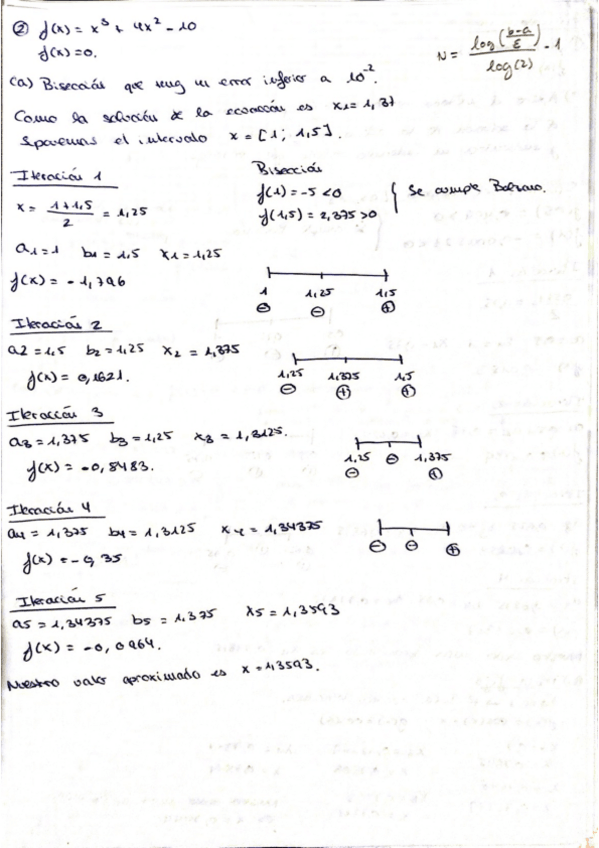 ② f(x) = x³ + 4x² - 10
f(x)=0.
N = log((b-a)/ε) / log(2) - 1
(a) Bisección que tenga un error inferior a 10⁻².
Como la solución de la ecuación es x1 = 1,37
Suponemos el intervalo x = [1; 1,5].
Iteración 1
x = (1+1,5)/2 = 1,25
Bisección
f(1) = -5 < 0
f(1,5) = 2,375 > 0
Se cumple Bolzano.
a1=1 b1=1,5 x1=1,25
f(x) = -1,796
1 1,25 1,5
⊖ ⊖ ⊕
Iteración 2
a2 = 1,5 b2 = 1,25 x2 = 1,375
f(x) = 0,1621.
1,25 1,375 1,5
⊖ ⊕ ⊕
Iteración 3
a3 = 1,375 b3 = 1,25 x3 = 1,3125.
f(x) = -0,8483.
1,25 ⊖ 1,375
⊖ ⊕
Iteración 4
a4 = 1,375 b4 = 1,3125 x4 = 1,34375
f(x) = -0,35
⊖ ⊖ ⊕
Iteración 5
a5 = 1,34375 b5 = 1,375 x5 = 1,3593
f(x) = -0,0964.
Nuestro valor aproximado es x = 1,3593.